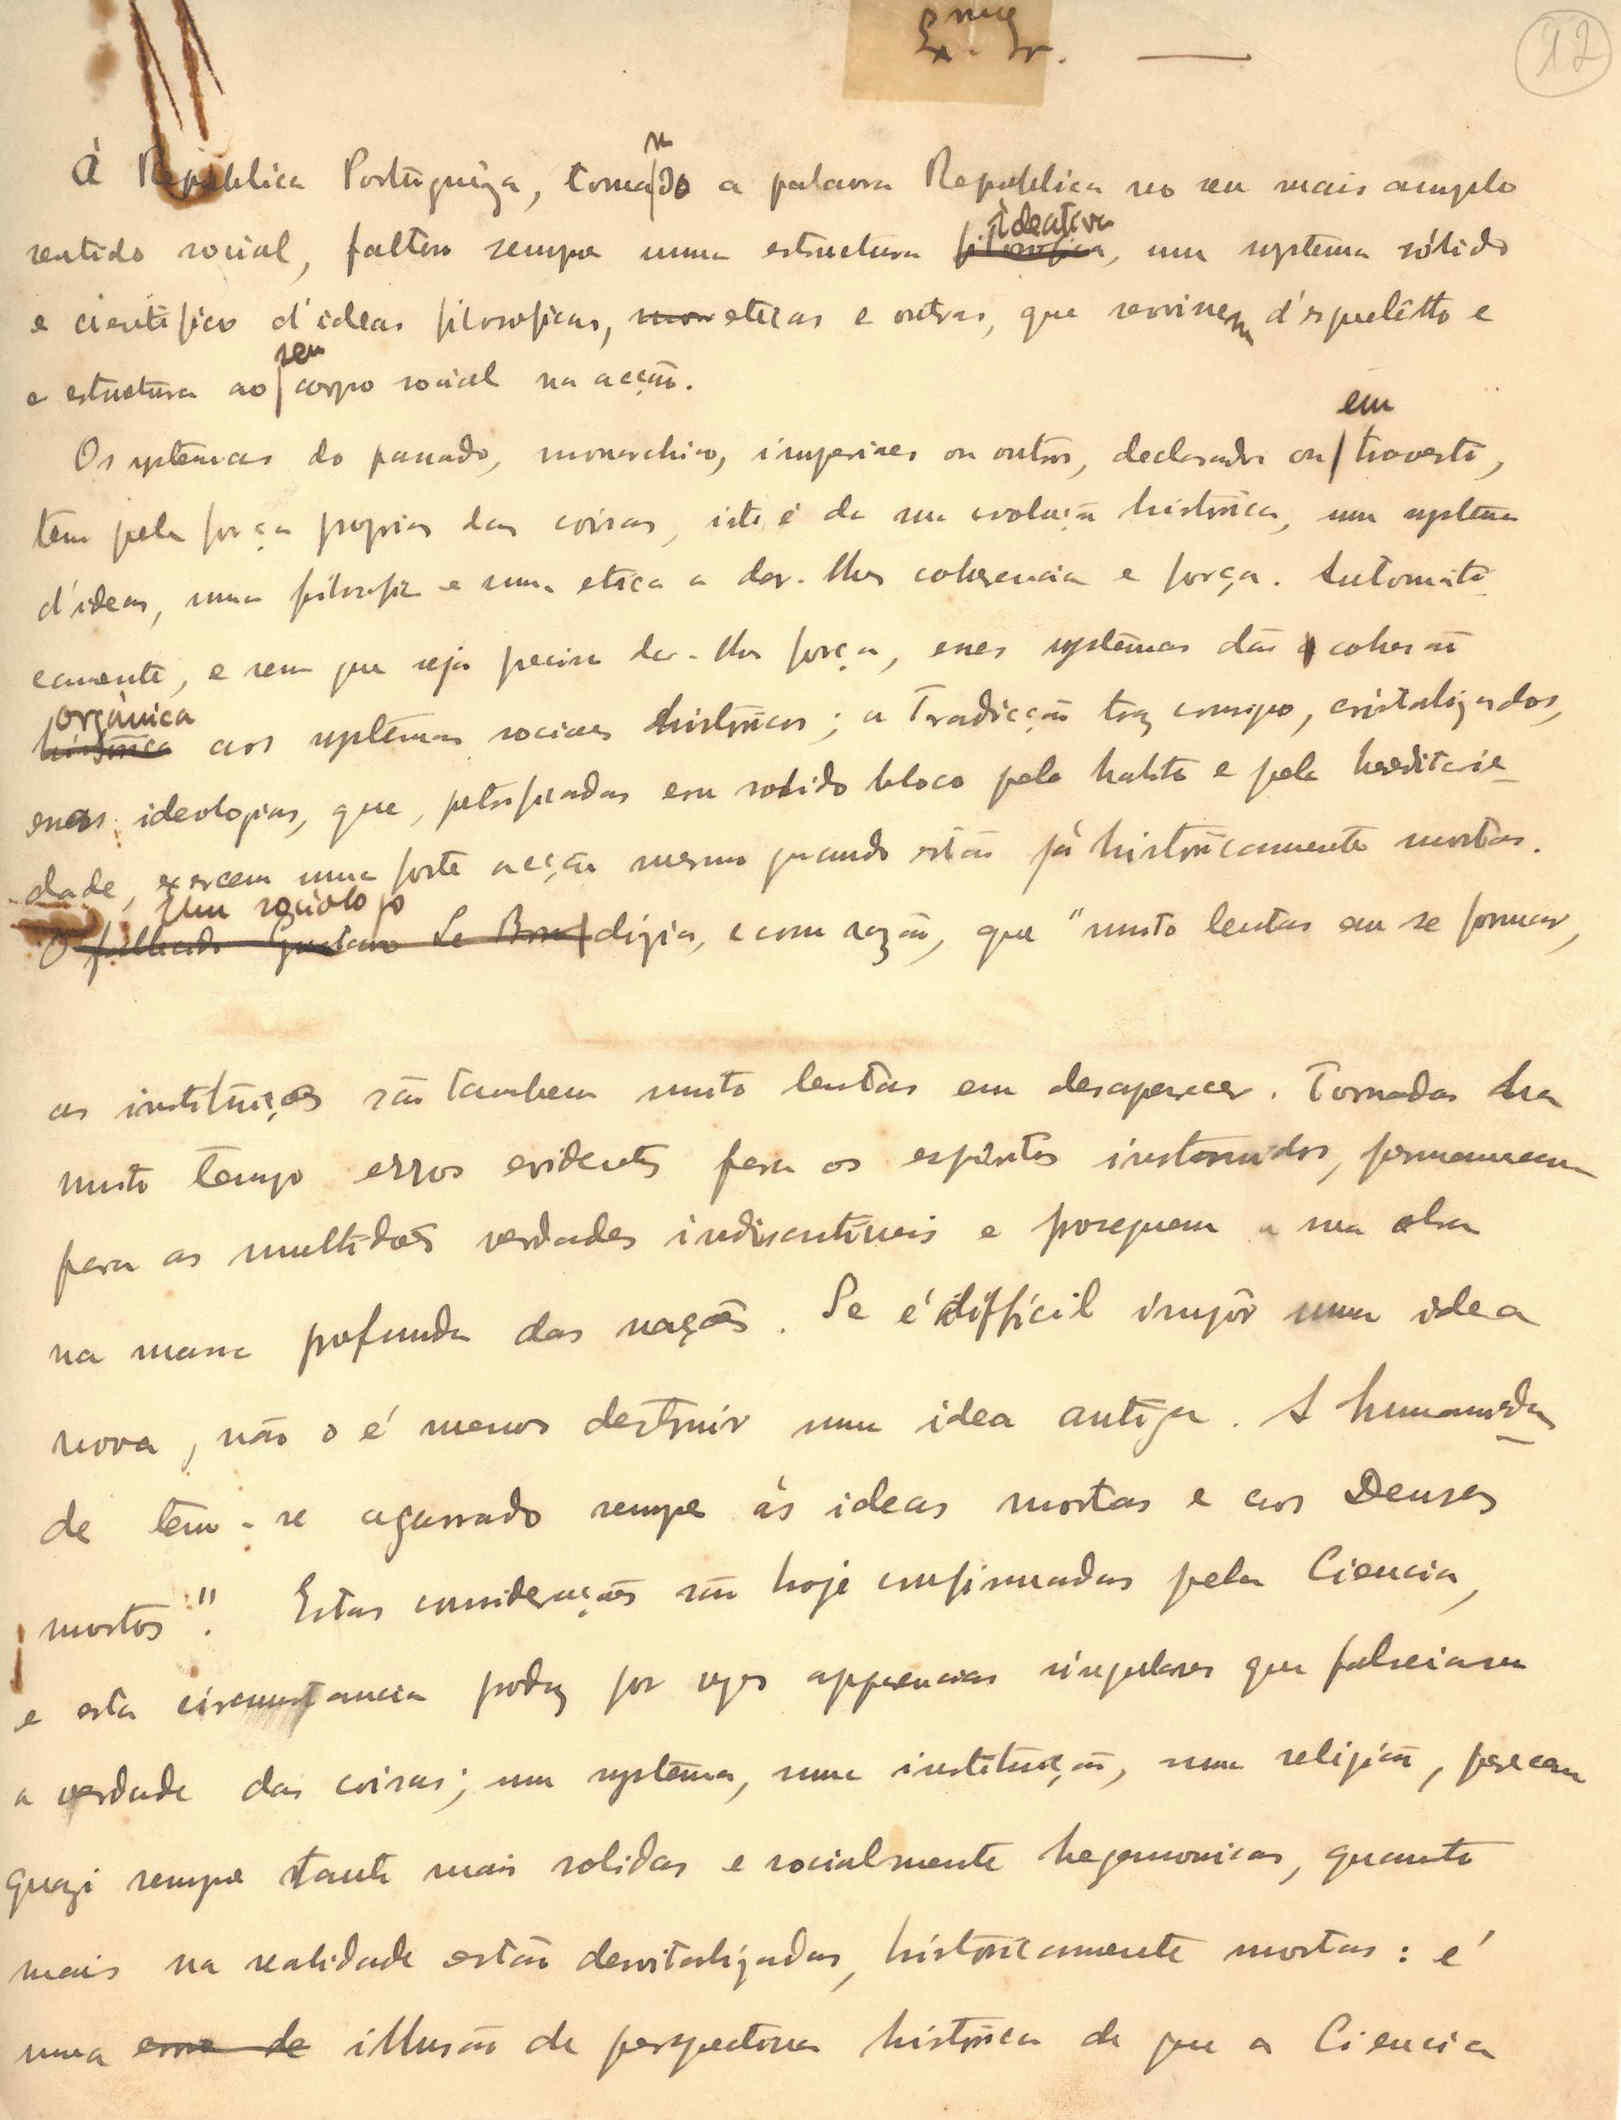 Exmo Sr.
12
À República Portugueza, tomando a palavra Republica no seu mais amplo
sentido social, faltou sempre uma estructura filosofica ideativa, um systema sólido
e cientifico d'ideas filosoficas, mor eticas e outras, que servissem d'esqueletto e
e estructura ao seu corpo social na acção.
Os systemas do passado, monarchico, imperiaes ou outros, declarados ou em travesti,
tem pela força propria das coisas, isto é da sua evolução histórica, um systema
d'ideas, uma filosofia e uma etica a dar-lhes coherencia e força. Automati-
camente, e sem que seja preciso dar-lhes força, esses systemas dão cohesão
histórica orgânica aos systemas sociaes históricos; a Tradicção traz comsigo, cristalizados,
essas ideologias, que, petrificadas em solido bloco pelo habito e pela hereditarie-
dade, exercem uma forte acção mesmo quando estão já históricamente mortas.
O fallecido Gustavo Le Bon Um sociologo dizia, e com razão, que "muito lentas em se formar,
as instituições são tambem muito lentas em desaparecer. Tornadas ha
muito tempo erros evidentes para os espiritos instruidos, permanecem
para as multidões verdades indiscutiveis e proseguem a sua obra
na massa profunda das nações. Se é difficil impôr uma idea
nova, não o é menos destruir uma idea antiga. A humanida-
de tem-se agarrado sempre ás ideas mortas e aos Deuses
mortos". Estas considerações são hoje confirmadas pela Ciencia,
e esta circumstancia produz por vezes apparencias singulares que falseiam
a verdade das coisas; um systema, uma instituição, uma religião, parecem
quazi sempre tanto mais solidas e socialmente hegemonicas, quanto
mais na realidade estão desvitalizadas, históricamente mortas: é
uma erro de illusão de perspectiva histórica de que a Ciencia